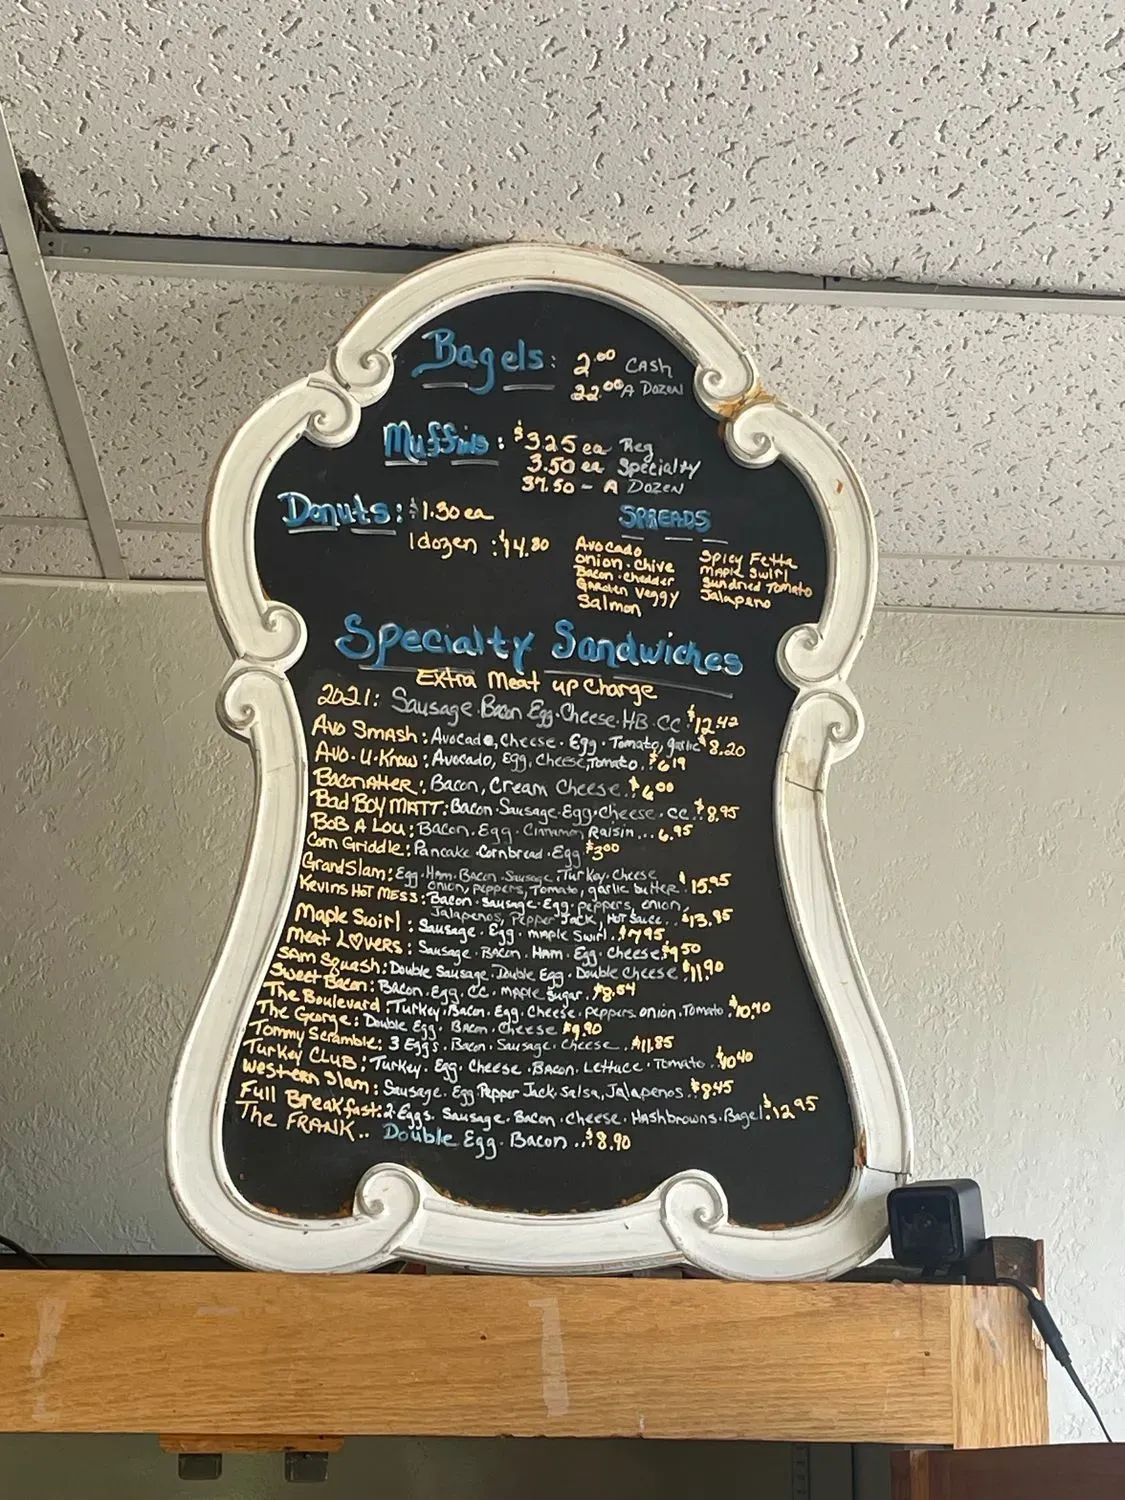 Bagels: 2.00 CASH
22.00 A DOZEN
Muffins: $3.25 ea Reg
3.50 ea Specialty
37.50 - A DOZEN
Donuts: $1.30 ea
1 dozen : $14.80
SPREADS
Avocado
Onion. Chive
Bacon. Chedder
Garden Veggy
Salmon
Spicy Fetta
Maple Swirl
Sundried Tomato
Jalapeno
Specialty Sandwiches
Extra Meat up Charge
2021: Sausage. Bacon Egg. Cheese. HB. CC. $12.42
Avo Smash: Avocado, Cheese. Egg. Tomato, garlic $8.20
Avo. U. Know: Avocado, Egg, Cheese, Tomato.. $6.19
Baconatter: Bacon, Cream Cheese.. $6.00
Bad Boy MATT: Bacon. Sausage. Egg. Cheese. CC. $8.95
Bob A Lou: Bacon. Egg. Cinnamon Raisin... 6.95
Corn Griddle: Pancake. Cornbread. Egg $3.00
GrandSlam: Egg. Ham. Bacon. Sausage, Turkey. Cheese
onion, peppers, Tomato, garlic butter. $15.95
Kevins HOT MESS: Bacon. Sausage. Egg. peppers, onion,
Jalapenos, Pepper Jack, Hot Sauce.. $13.95
Maple Swirl: Sausage. Egg. maple Swirl.. $7.95
Meat L♡vers: Sausage. Bacon. Ham. Egg. Cheese. $9.50
SAM Squash: Double Sausage. Double Egg. Double Cheese $11.90
Sweet Bacon: Bacon. Egg. CC. maple Sugar. $8.64
The Boulevard: Turkey. Bacon. Egg. Cheese. Peppers. onion. Tomato. $10.70
The George: Double Egg. Bacon. Cheese $9.90
Tommy Scramble: 3 Eggs. Bacon. Sausage. Cheese.. $11.85
Turkey CLUB: Turkey. Egg. Cheese. Bacon. Lettuce. Tomato.. $10.40
Western Slam: Sausage. Egg Pepper Jack. Salsa, Jalapenos. $8.45
Full Breakfast: 2 Eggs. Sausage. Bacon. Cheese. Hashbrowns. Bagel. $12.95
The FRANK.. Double Egg. Bacon... $8.90